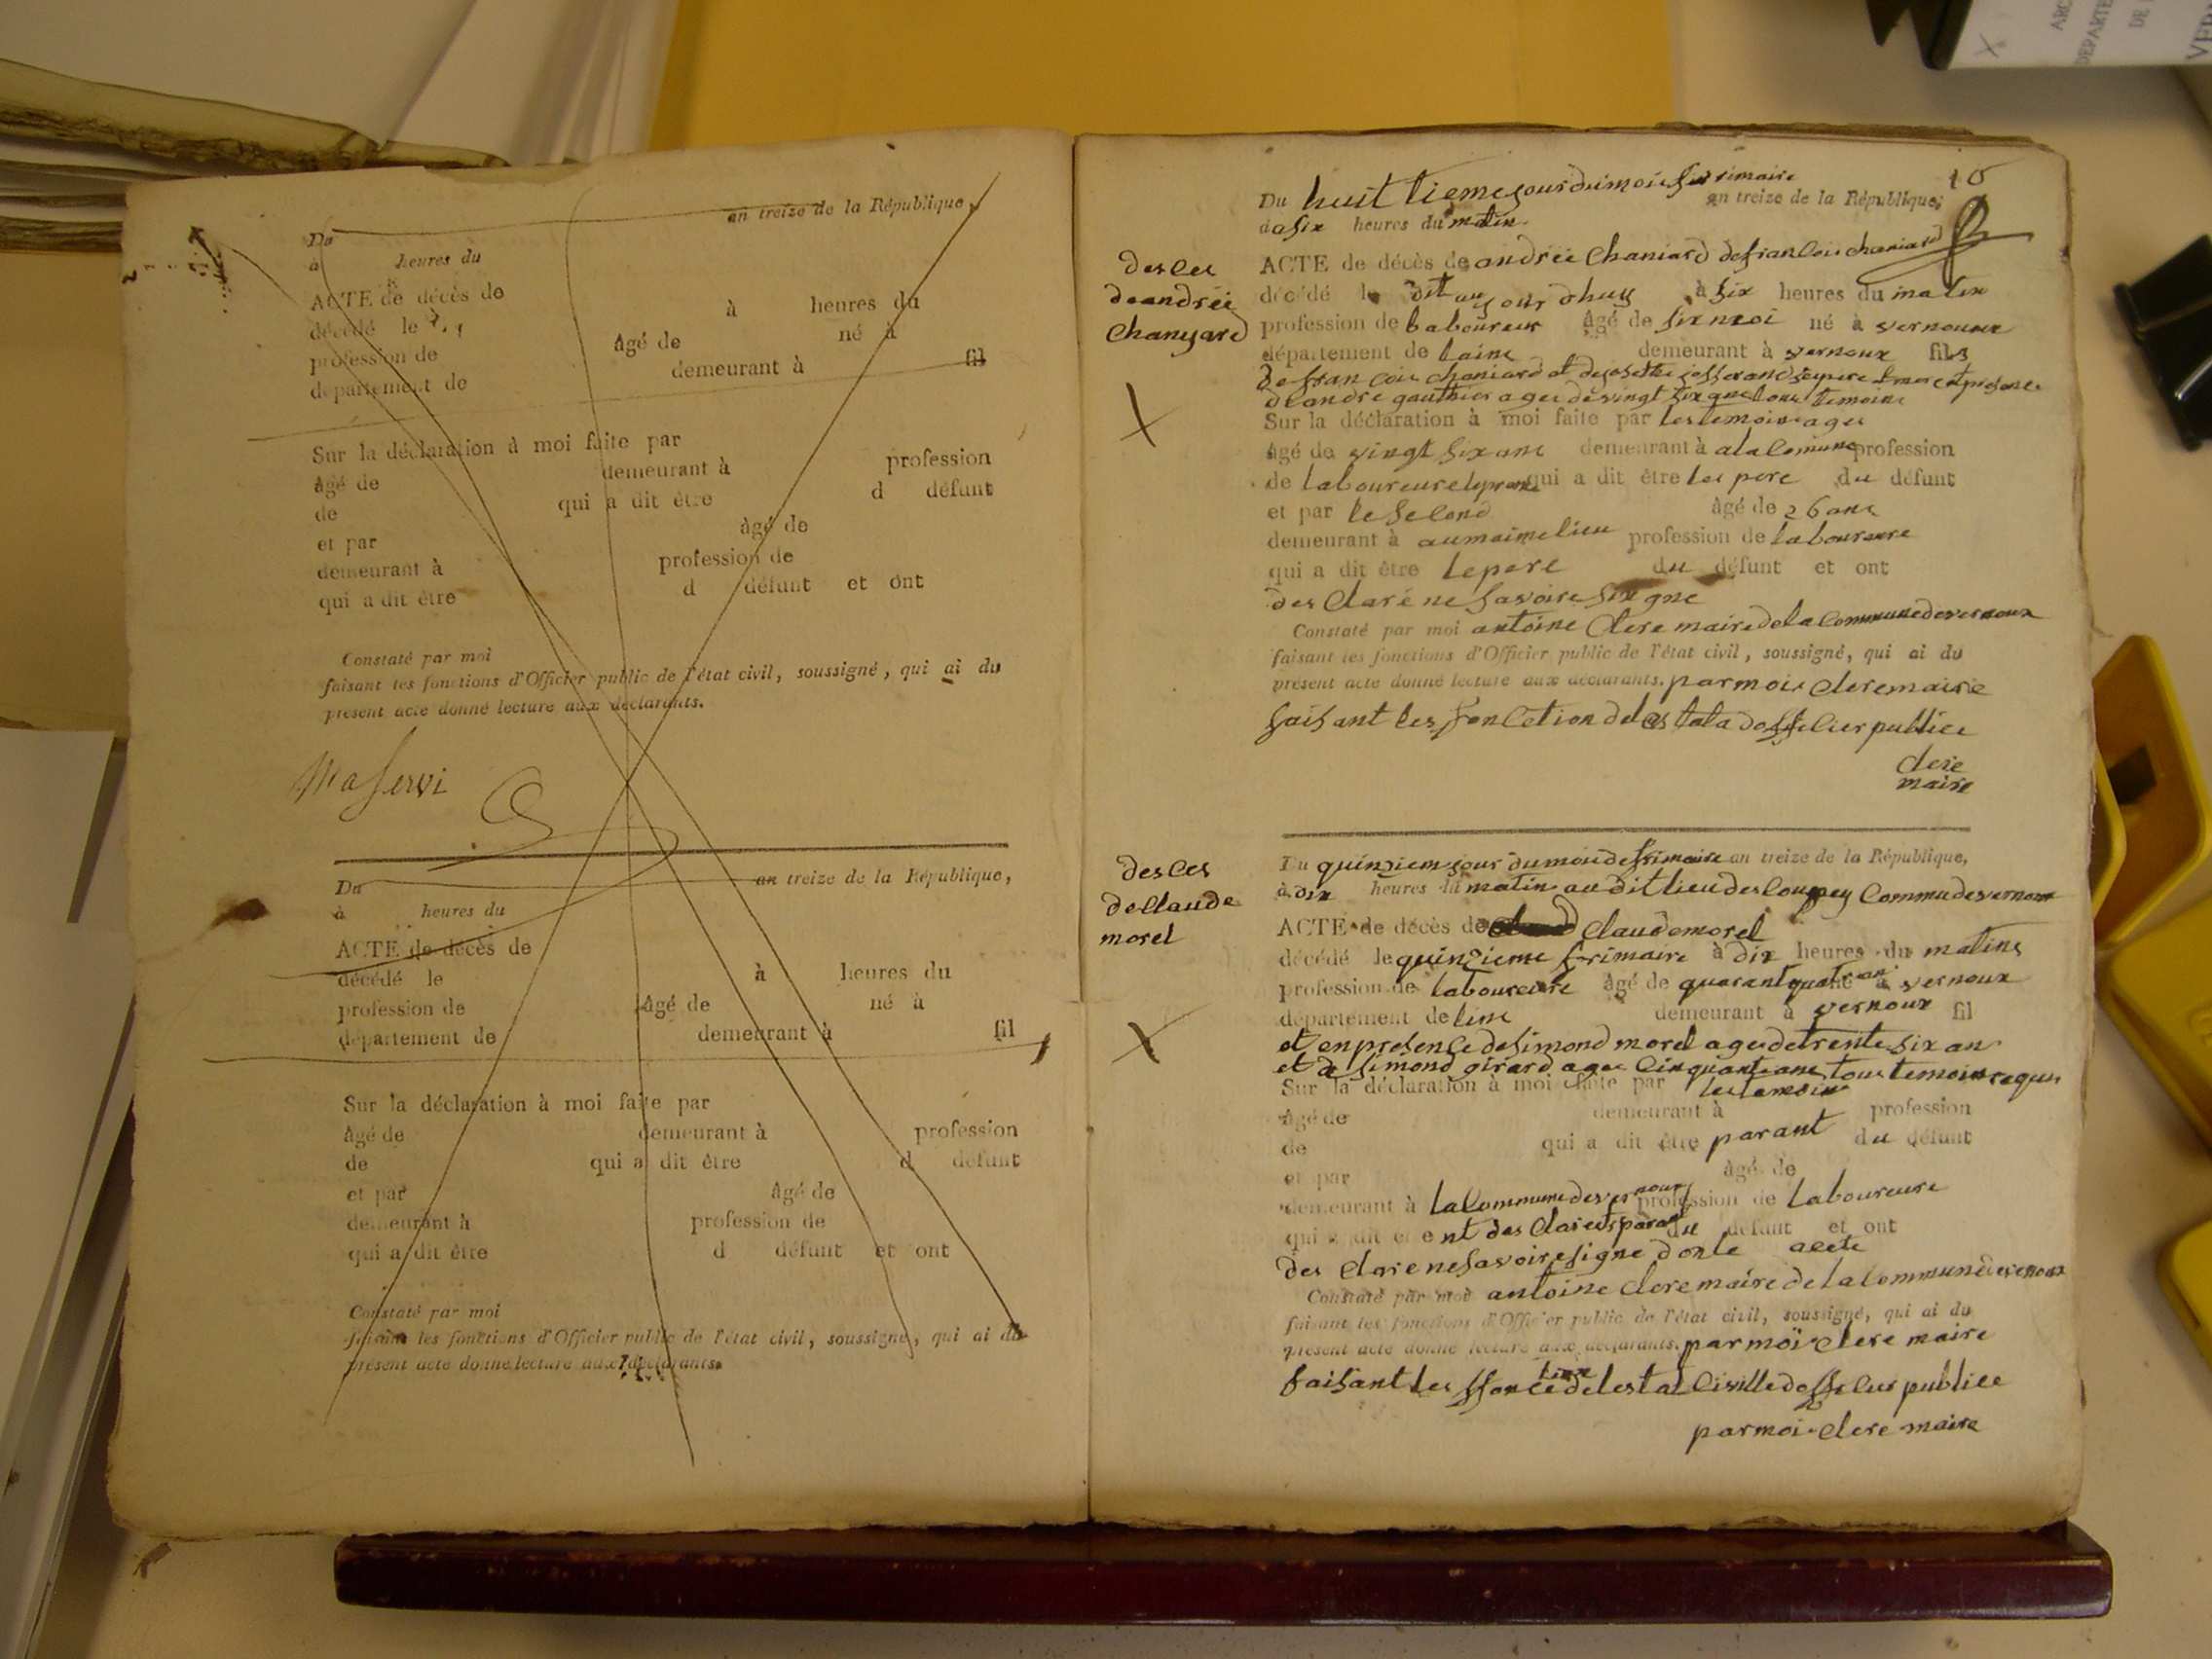 an treize de la République,
Du
à heures du
ACTE de décès de
décédé le à heures du
profession de âgé de né à
département de demeurant à fil
Sur la déclaration à moi faite par
âgé de demeurant à profession
de qui a dit être d défunt
et par âgé de
demeurant à profession de
qui a dit être d défunt et ont
Constaté par moi
faisant les fonctions d'Officier public de l'état civil, soussigné, qui ai du
présent acte donné lecture aux déclarants.
Maservi
Du an treize de la République,
à heures du
ACTE de décès de
décédé le à heures du
profession de âgé de né à
département de demeurant à fil
Sur la déclaration à moi faite par
âgé de demeurant à profession
de qui a dit être d défunt
et par âgé de
demeurant à profession de
qui a dit être d défunt et ont
Constaté par moi
faisant les fonctions d'Officier public de l'état civil, soussigné, qui ai du
présent acte donné lecture aux déclarants.
10
Du huit tieme jour du mois frimaire
an treize de la République,
à six heures du matin
desces
de andréé
chanyard
ACTE de décès de andréé Chaniard de francois chaniard
décédé le dit au jour dhuy à six heures du matin
profession de laboureur âgé de six moi né à vernoux
département de laine demeurant à vernoux fils
de francois chaniard et de josette josserand
de andré gauthier agee de vingt six ans tous temoins
Sur la déclaration à moi faite par les temoins ages
âgé de vingt six ans demeurant à a la comune profession
de laboureure qui a dit être les pere du défunt
et par le second âgé de 26 ans
demeurant à au maime lieu profession de laboureure
qui a dit être le pere du défunt et ont
des claré ne savoire signe
Constaté par moi antoine Clere maire de la Commune de vernoux
faisant les fonctions d'Officier public de l'état civil, soussigné, qui ai du
présent acte donné lecture aux déclarants. par moi Clere maire
faisant les fonCetion de les tata dofficier publice
Clere
maire
desces
de Claude
morel
Du quinziem jour du moi de frimaire an treize de la République,
à dix heures du matin au dit lieu des Commu de vernoux
ACTE de décès de Claude morel
décédé le quinzieme frimaire à dix heures du matins
profession de laboureure âgé de quarant quatre an né à vernoux
département de line demeurant à vernoux fil
et en presence de simond morel agee de trente six an
et de simond girard agee Cinquante ans tous temoins requis
Sur la déclaration à moi faite par les temoins
âgé de demeurant à profession
de qui a dit être parant du défunt
et par âgé de
demeurant à la Commune de vernoux profession de laboureure
qui a dit et ent des clarets parant du défunt et ont
des clare ne savoire signe donle acete
Constaté par moi antoine Clere maire de la Commune de vernoux
faisant les fonctions d'Officier public de l'état civil, soussigné, qui ai du
présent acte donné lecture aux déclarants. par moi Clere maire
faisant les ffonCetion de lestat Civille doffecier publice
par moi Clere maire
ARC
DEPARTE
DE
VER